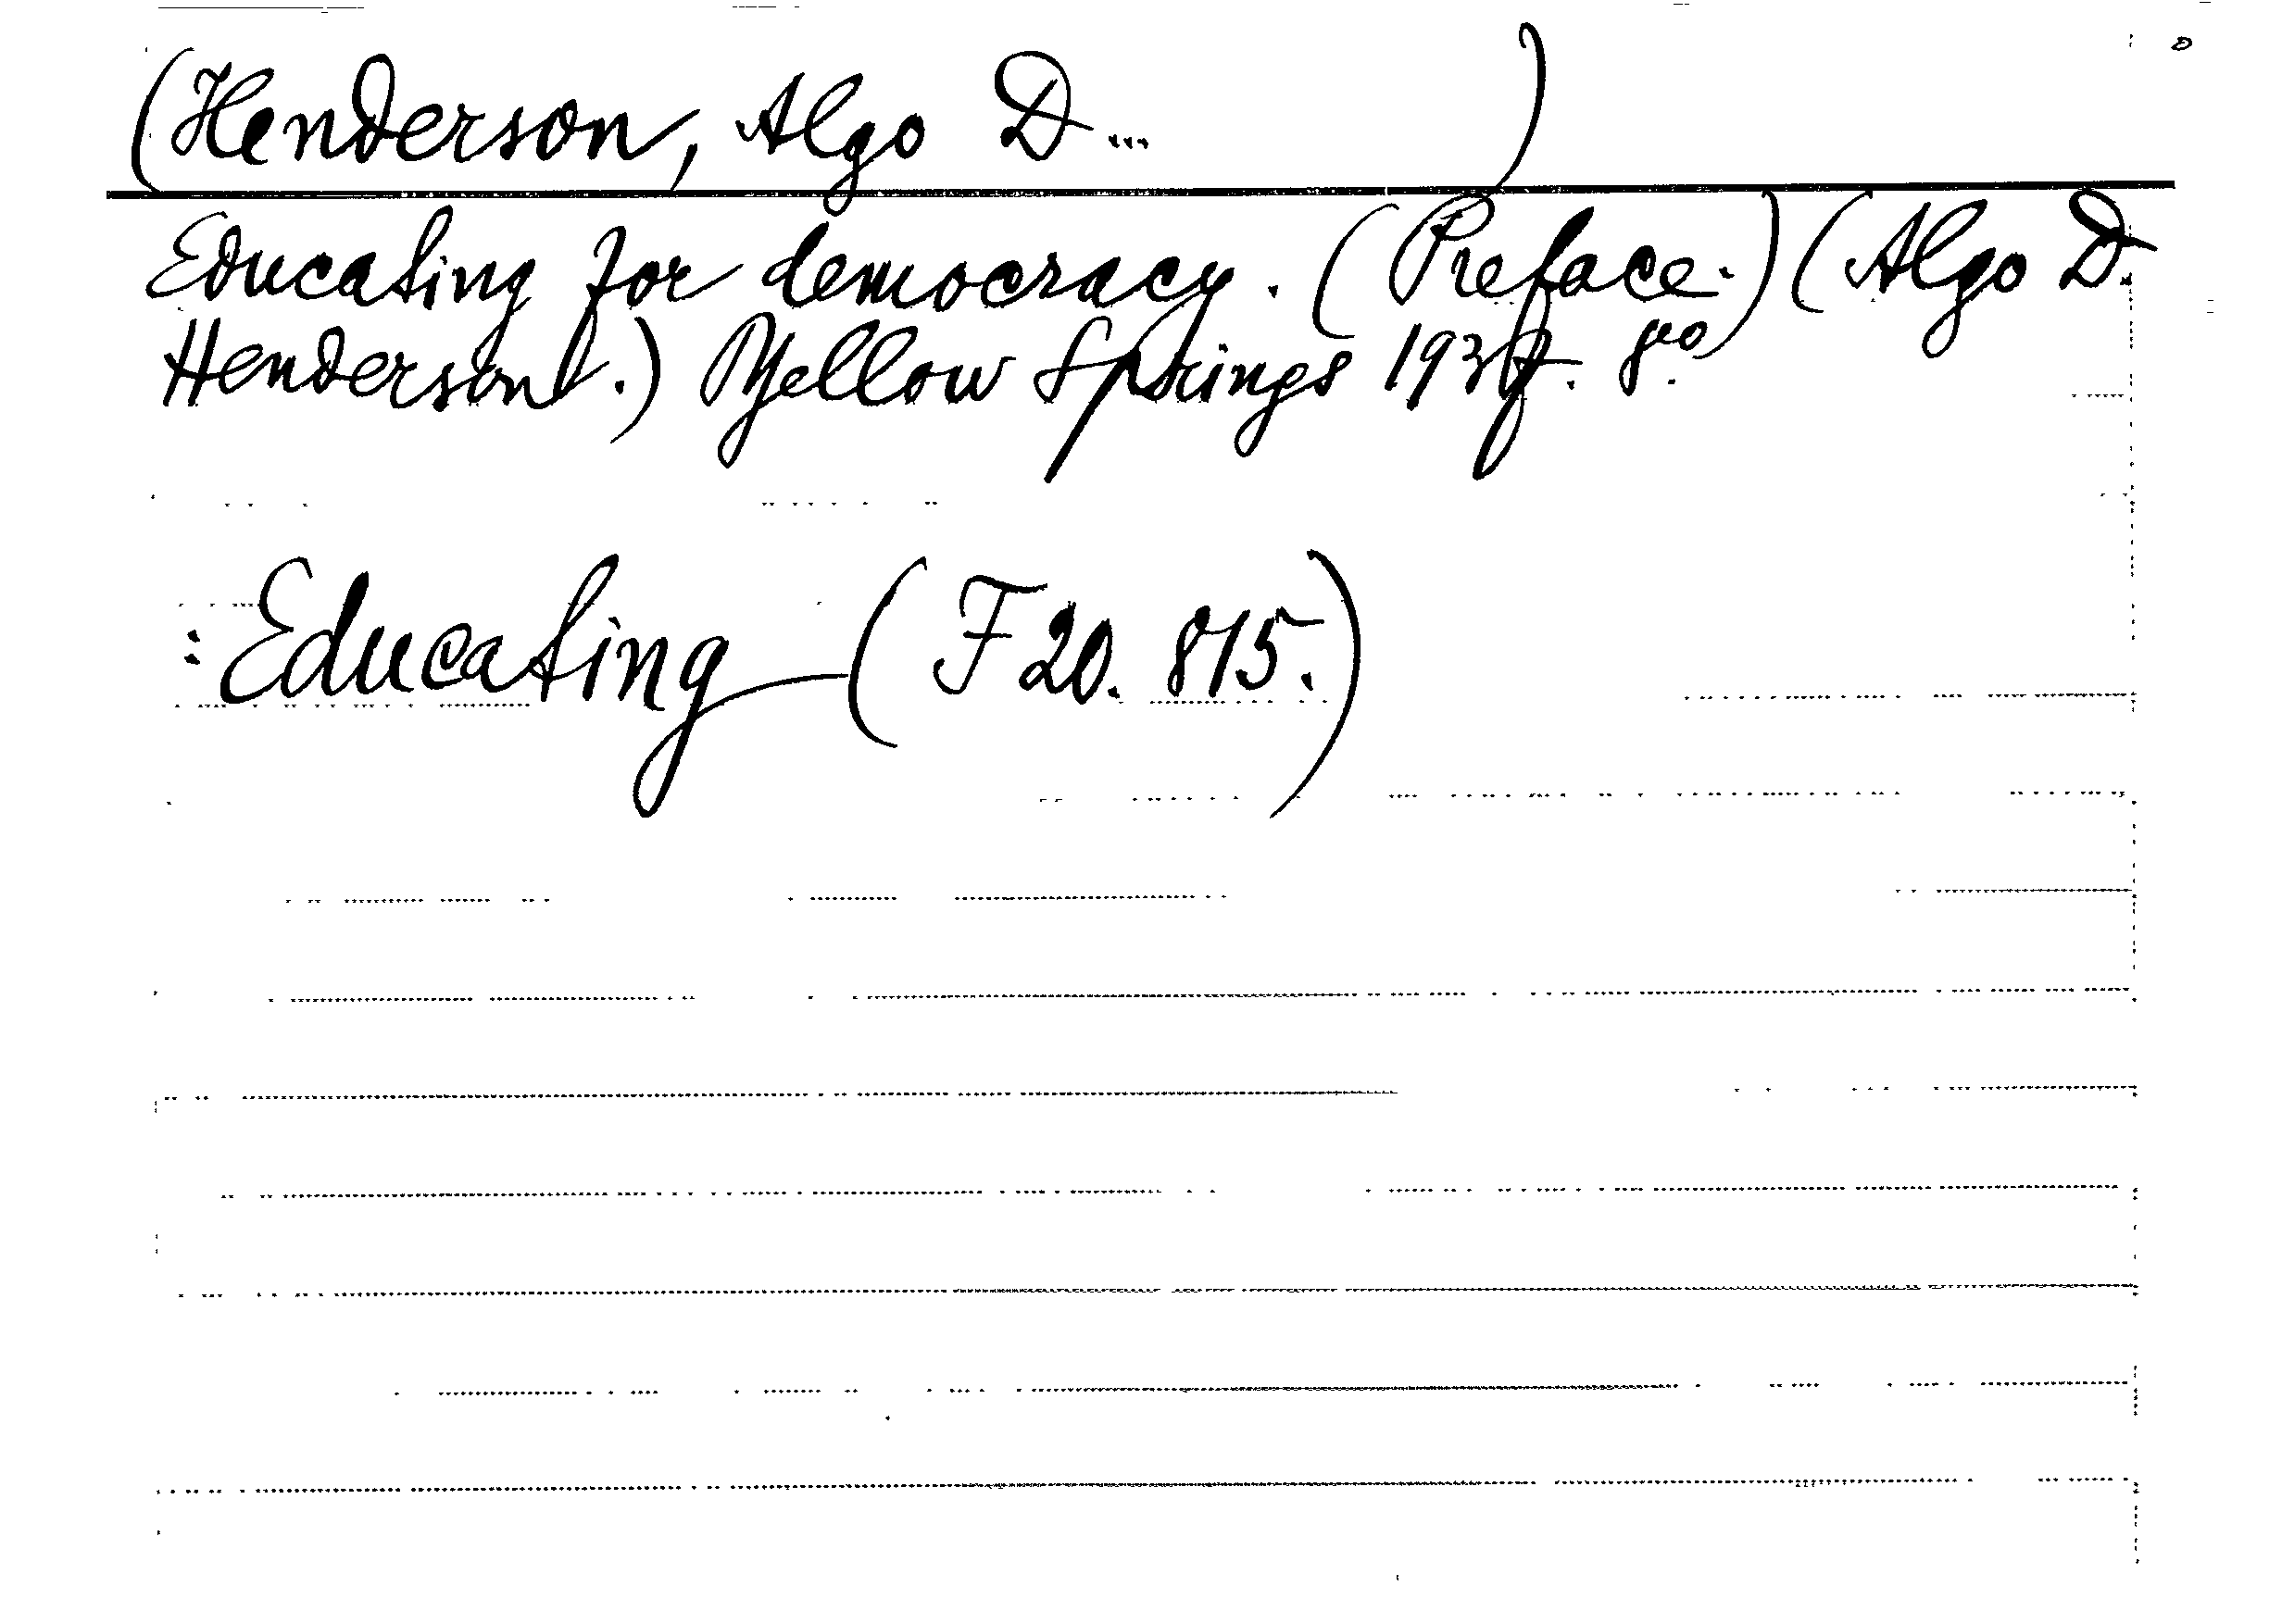 (Henderson, Algo D... )
Educating for democracy. (Preface.) (Algo D.
Henderson.) Yellow Springs 1937. 8:o
: Educating (F 20. 815.)